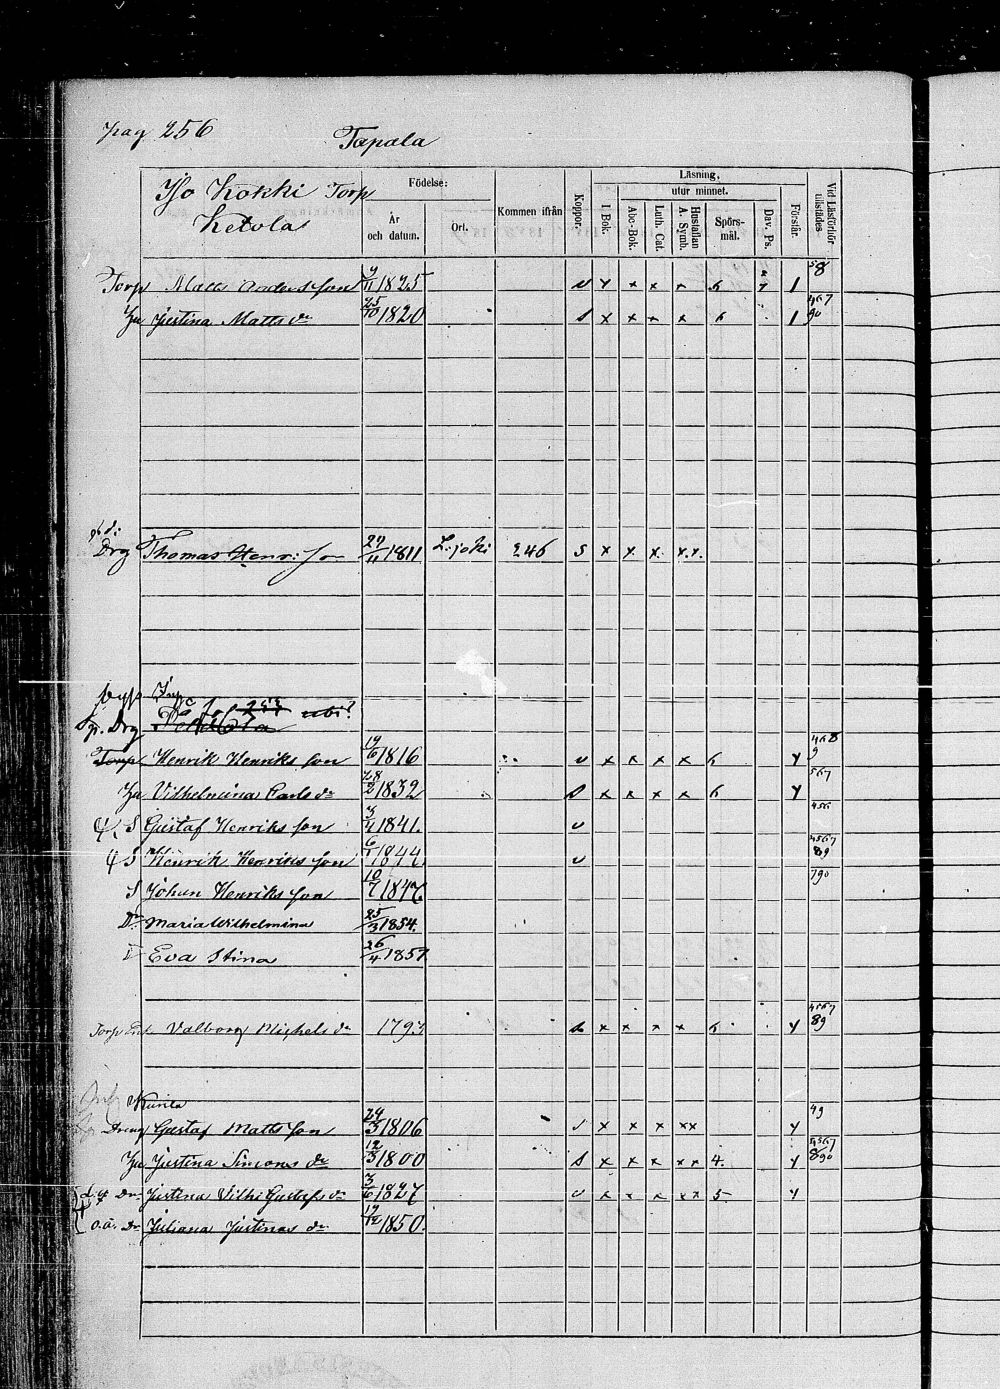 pag 256
Tapala
Iso Kokki Torp
Ketola
Födelse:
År och datum.
Ort.
Kommen ifrån
Koppor.
Läsning,
utur minnet.
I Bok.
Abc-Bok.
Luth. Cat.
Hustaflan A. Symb.
Spörs-mål.
Dav. Ps.
Förstår.
Vid Läsförhör tillstädes.
Torp Matts Anders son 9/11 1825 v y x x x 6 1 58
Hu Justina Matts dr 25/10 1820 s x x x x 6 1 467 90
Drg Thomas Henr: son 24/11 1811 L:joki 246 s x x x x.x.
Torp Henrik Henriks son 19/6 1816 v x x x x 6 y 468 9
Hu Vilhelmina Carls dr 28/2 1832 s x x x x 6 y 567
S Gustaf Henriks son 3/4 1841. v 456
S Henrik Henriks son 6/1 1844 v 4567 89
S Johan Henriks son 10/7 1847. 790
Dr Maria Wilhelmina 25/3 1854.
D Eva Stina 26/4 1857
Torp Enk Valborg Michels dr 1793 s x x x x 6 y 4567 89
Kurila
Dreng Gustaf Matts son 24/3 1806 s x x x xx y 49
Hu Justina Simons dr 12/3 1800 s x x x xx 4. y 4567 890
Dr Justina Vilhe Gustafs dr 3/6 1827 v x x x xx 5 y
o.ä. Dr Juliana Justinas dr 19/12 1850.